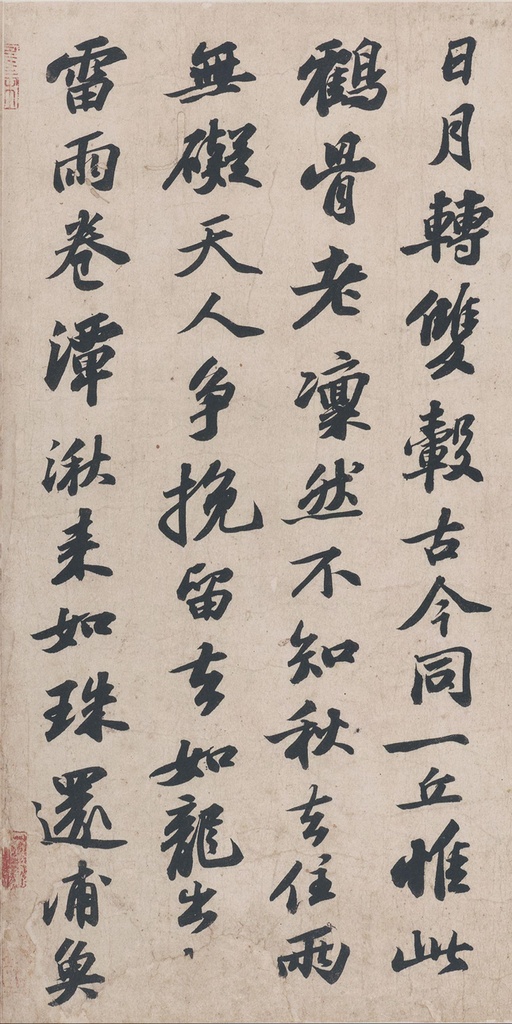 日月轉雙轂古今同一丘惟此
鶴骨老凜然不知秋去住兩
無礙天人争挽留去如龍出
雷雨卷潭湫来如珠還浦魚